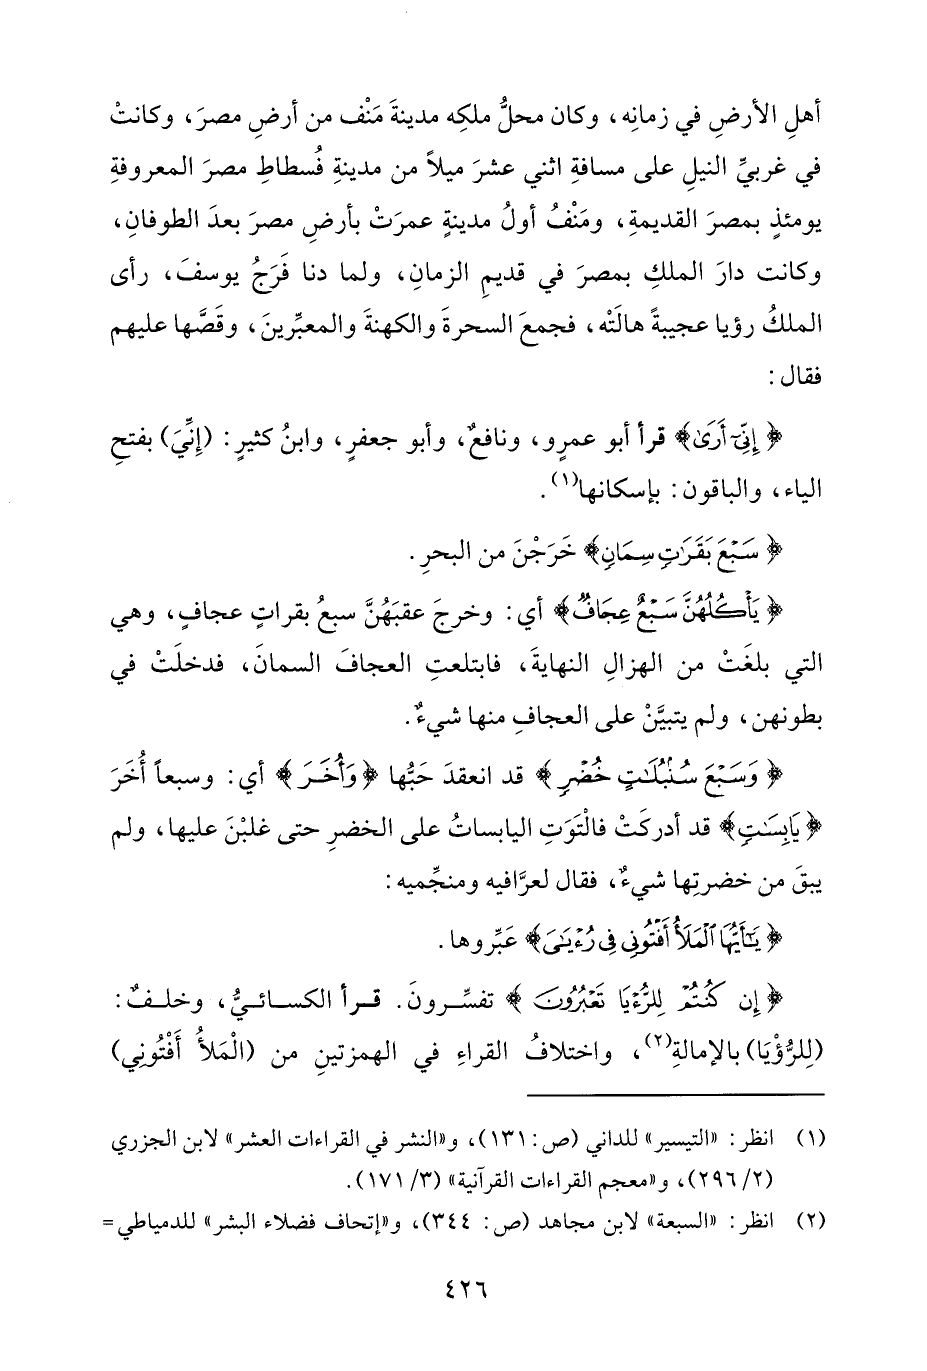 أهلِ الأرضِ في زمانِه، وكان محلُّ ملكِه مدينةَ مَنْف من أرضِ مصرَ، وكانتْ
في غربيِّ النيلِ على مسافةِ اثني عشرَ ميلاً من مدينةِ فُسطاطِ مصرَ المعروفةِ
يومئذٍ بمصرَ القديمةِ، ومَنْفُ أولُ مدينةٍ عمرَتْ بأرضِ مصرَ بعدَ الطوفانِ،
وكانت دارَ الملكِ بمصرَ في قديمِ الزمانِ، ولما دنا فَرَجُ يوسفَ، رأى
الملكُ رؤيا عجيبةً هالَتْه، فجمعَ السحرةَ والكهنةَ والمعبِّرينَ، وقَصَّها عليهم
فقال:
﴿إِنِّيٓ أَرَىٰ﴾ قرأ أبو عمرٍو، ونافعٌ، وأبو جعفرٍ، وابنُ كثيرٍ: (إِنِّيَ) بفتحِ
الياء، والباقون: بإسكانها(١).
﴿سَبْعَ بَقَرَٰتٍ سِمَانٍ﴾ خَرَجْنَ من البحرِ.
﴿يَأْكُلُهُنَّ سَبْعٌ عِجَافٌ﴾ أي: وخرجَ عقبَهُنَّ سبعُ بقراتٍ عجافٍ، وهي
التي بلغَتْ من الهزالِ النهايةَ، فابتلعتِ العجافَ السمانَ، فدخلَتْ في
بطونهن، ولم يتبيَّنْ على العجافِ منها شيءٌ.
﴿وَسَبْعَ سُنۢبُلَٰتٍ خُضْرٍ﴾ قد انعقدَ حَبُّها ﴿وَأُخَرَ﴾ أي: وسبعاً أُخَرَ
﴿يَابِسَٰتٍ﴾ قد أدركَتْ فالْتَوَتِ اليابساتُ على الخضرِ حتى غلبْنَ عليها، ولم
يبقَ من خضرتِها شيءٌ، فقال لعرَّافيه ومنجِّميه:
﴿يَٰٓأَيُّهَا ٱلْمَلَأُ أَفْتُونِي فِي رُءْيَٰيَ﴾ عَبِّروها.
﴿إِن كُنتُمْ لِلرُّءْيَا تَعْبُرُونَ﴾ تفسِّرونَ. قرأ الكسائيُّ، وخلفٌ:
(لِلرُّؤْيَا) بالإمالةِ(٢)، واختلافُ القراءِ في الهمزتينِ من (الْمَلأُ أَفْتُونِي)
(١) انظر: «التيسير» للداني (ص: ١٣١)، و«النشر في القراءات العشر» لابن الجزري
(٢/ ٢٩٦)، و«معجم القراءات القرآنية» (٣/ ١٧١).
(٢) انظر: «السبعة» لابن مجاهد (ص: ٣٤٤)، و«إتحاف فضلاء البشر» للدمياطي =
٤٢٦